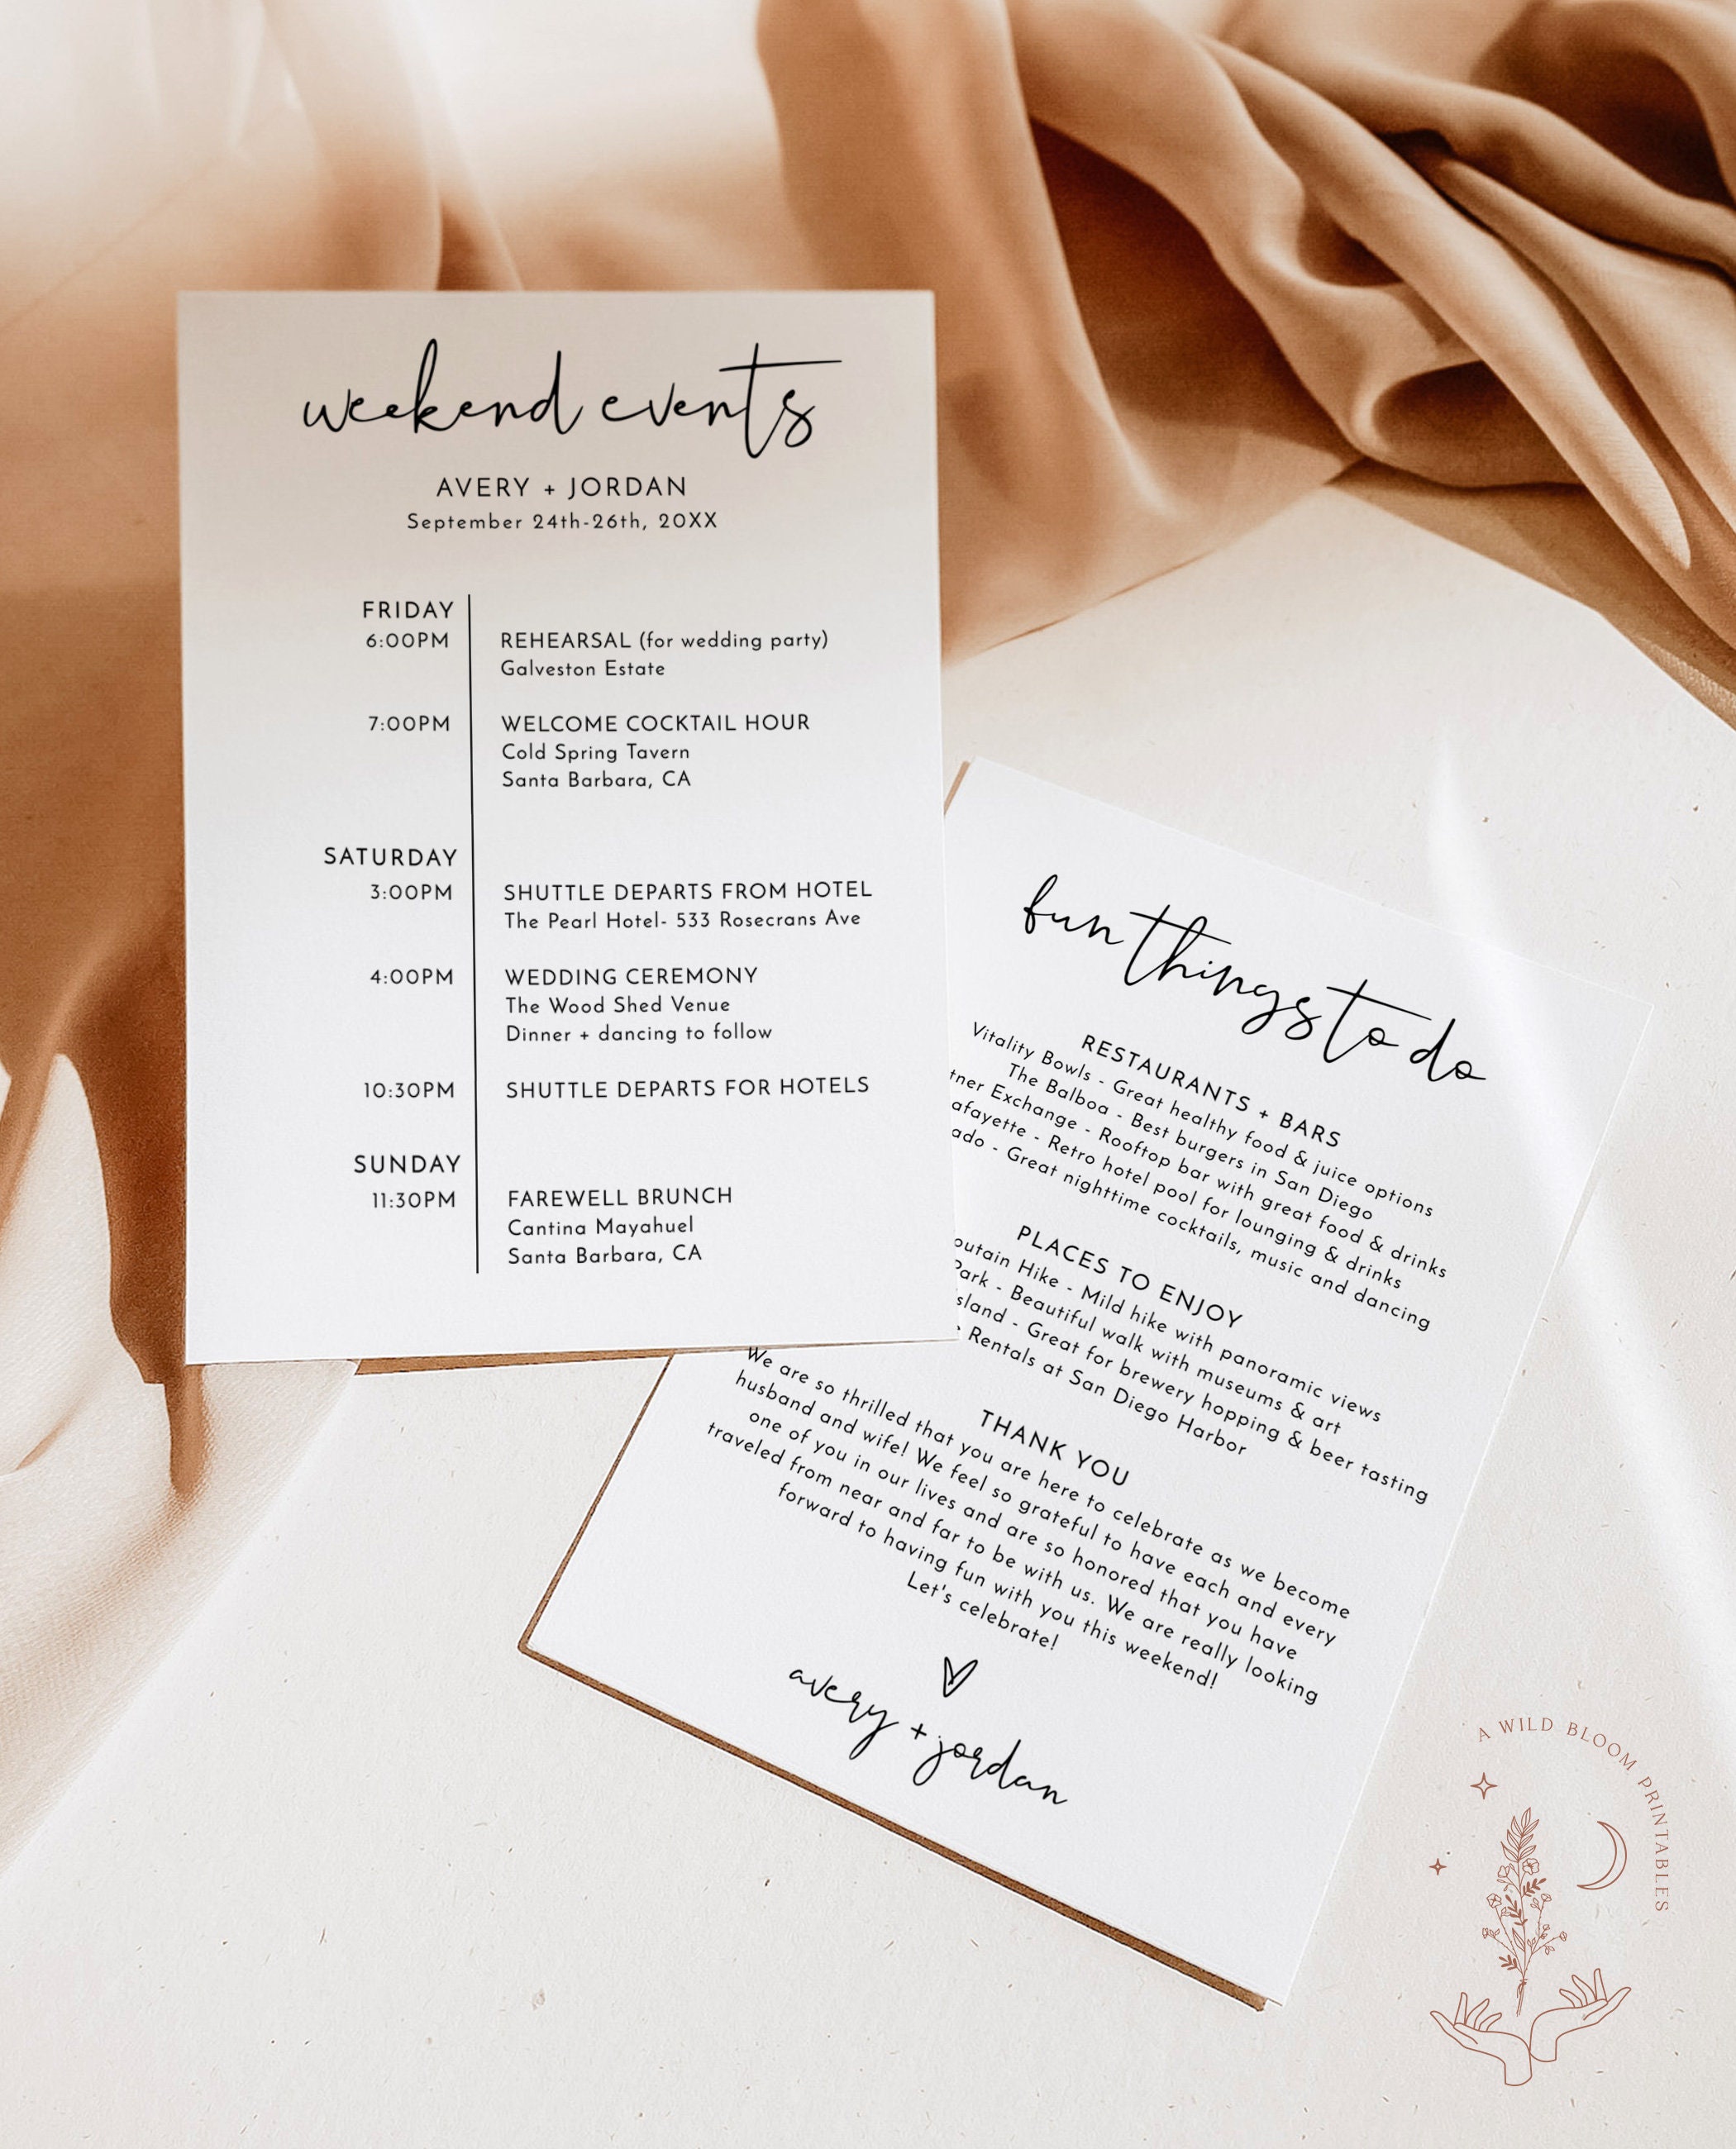 weekend events
AVERY + JORDAN
September 24th-26th, 20XX
FRIDAY
6:00PM
REHEARSAL (for wedding party)
Galveston Estate
7:00PM
WELCOME COCKTAIL HOUR
Cold Spring Tavern
Santa Barbara, CA
SATURDAY
3:00PM
SHUTTLE DEPARTS FROM HOTEL
The Pearl Hotel- 533 Rosecrans Ave
4:00PM
WEDDING CEREMONY
The Wood Shed Venue
Dinner + dancing to follow
10:30PM
SHUTTLE DEPARTS FOR HOTELS
SUNDAY
11:30PM
FAREWELL BRUNCH
Cantina Mayahuel
Santa Barbara, CA
fun things to do
RESTAURANTS + BARS
Vitality Bowls - Great healthy food & juice options
The Balboa - Best burgers in San Diego
Exchange - Rooftop bar with great food & drinks
- Retro hotel pool for lounging & drinks
- Great nighttime cocktails, music and dancing
PLACES TO ENJOY
Hike - Mild hike with panoramic views
Park - Beautiful walk with museums & art
- Great for brewery hopping & beer tasting
Rentals at San Diego Harbor
THANK YOU
We are so thrilled that you are here to celebrate as we become
husband and wife! We feel so grateful to have each and every
one of you in our lives and are so honored that you have
traveled from near and far to be with us. We are really looking
forward to having fun with you this weekend!
Let's celebrate!
avery + jordan
A WILD BLOOM PRINTABLES